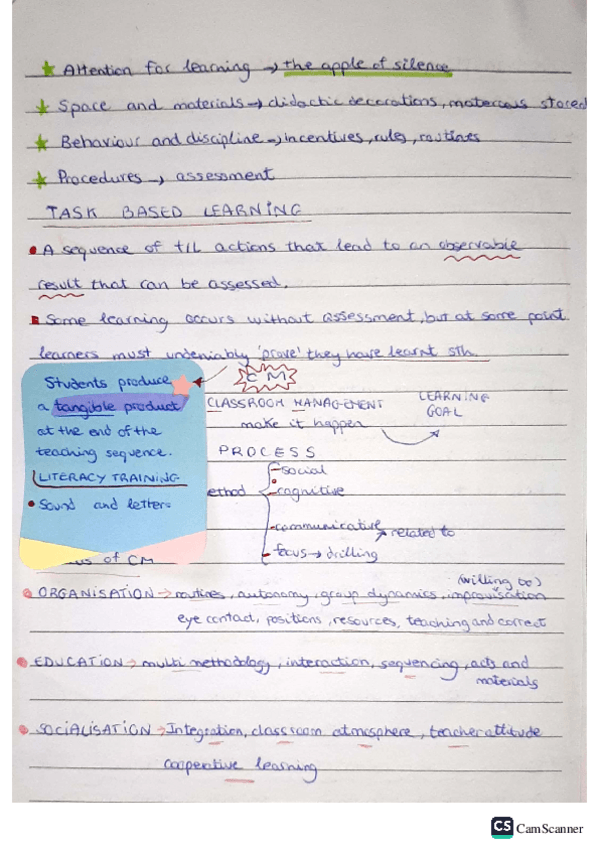 Attention for learning → the apple of silence
Space and materials → didactic decorations, materials stored
Behaviour and discipline → incentives, rules, routines
Procedures → assessment
TASK BASED LEARNING
A sequence of T/L actions that lead to an observable
result that can be assessed.
Some learning occurs without assessment, but at some point
learners must undeniably 'prove' they have learnt sth.
Students produce
a tangible product
at the end of the
teaching sequence.
LITERACY TRAINING
Sound and letters
CM
CLASSROOM MANAGEMENT
make it happen
LEARNING
GOAL
PROCESS
ethod
social
cognitive
communicative
related to
focus → drilling
us of CM
(willing to)
ORGANISATION → routines, autonomy, group dynamics, improvisation
eye contact, positions, resources, teaching and correct
EDUCATION → multi methodology, interaction, sequencing, acts and
materials
SOCIALISATION → Integration, classroom atmosphere, teacher attitude
cooperative learning
CS CamScanner